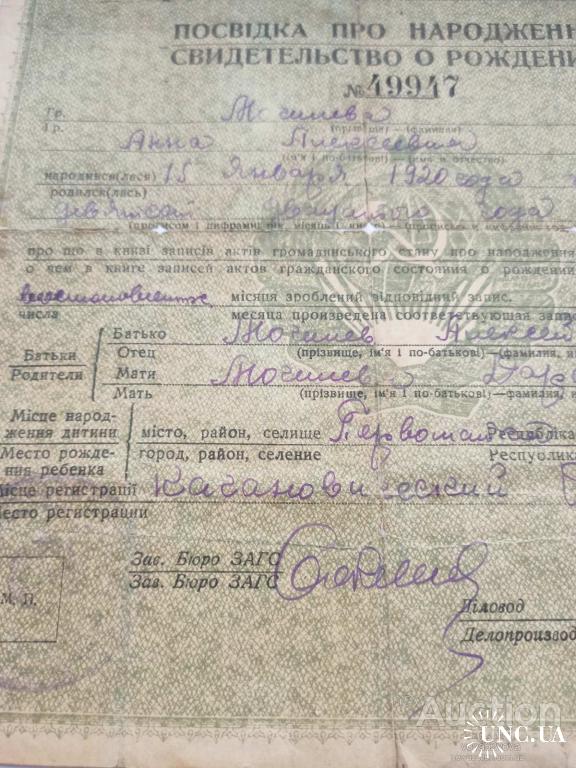 ПОСВІДКА ПРО НАРОДЖЕНН
СВИДЕТЕЛЬСТВО О РОЖДЕНИ
№ 49947
Гр. Могилева
Гр. (прізвище)—(фамилия)
Анна Алексеевна
(ім'я і по-батькові)—(имя и отчество)
народився(лася) 15 Января 1920 года
родился(лась)
девятсот двадцатого года
(прописом і цифрами: рік, місяць і число)—(прописью и
про що в книзі записів актів громадянського стану про народження
о чем в книге записей актов гражданского состояния о рождении
місяця зроблений відповідний запис.
числа месяца произведена соответствующая запис
Батьки Батько Могилев Алексей
Родители Отец (прізвище, ім'я і по-батькові)—(фамилия, и
Мати Могилев
Мать (прізвище, ім'я і по-батькові)—(фамилия,
Місце народ-
ження дитини місто, район, селище Республіка
Место рожде- город, район, селение Республика
ния ребенка
Місце реєстрації Кагановический
Место регистрации
Зав. Бюро ЗАГС
Зав. Бюро ЗАГС
М. П.
Діловод
Делопроизвод
Auction
UNC.UA